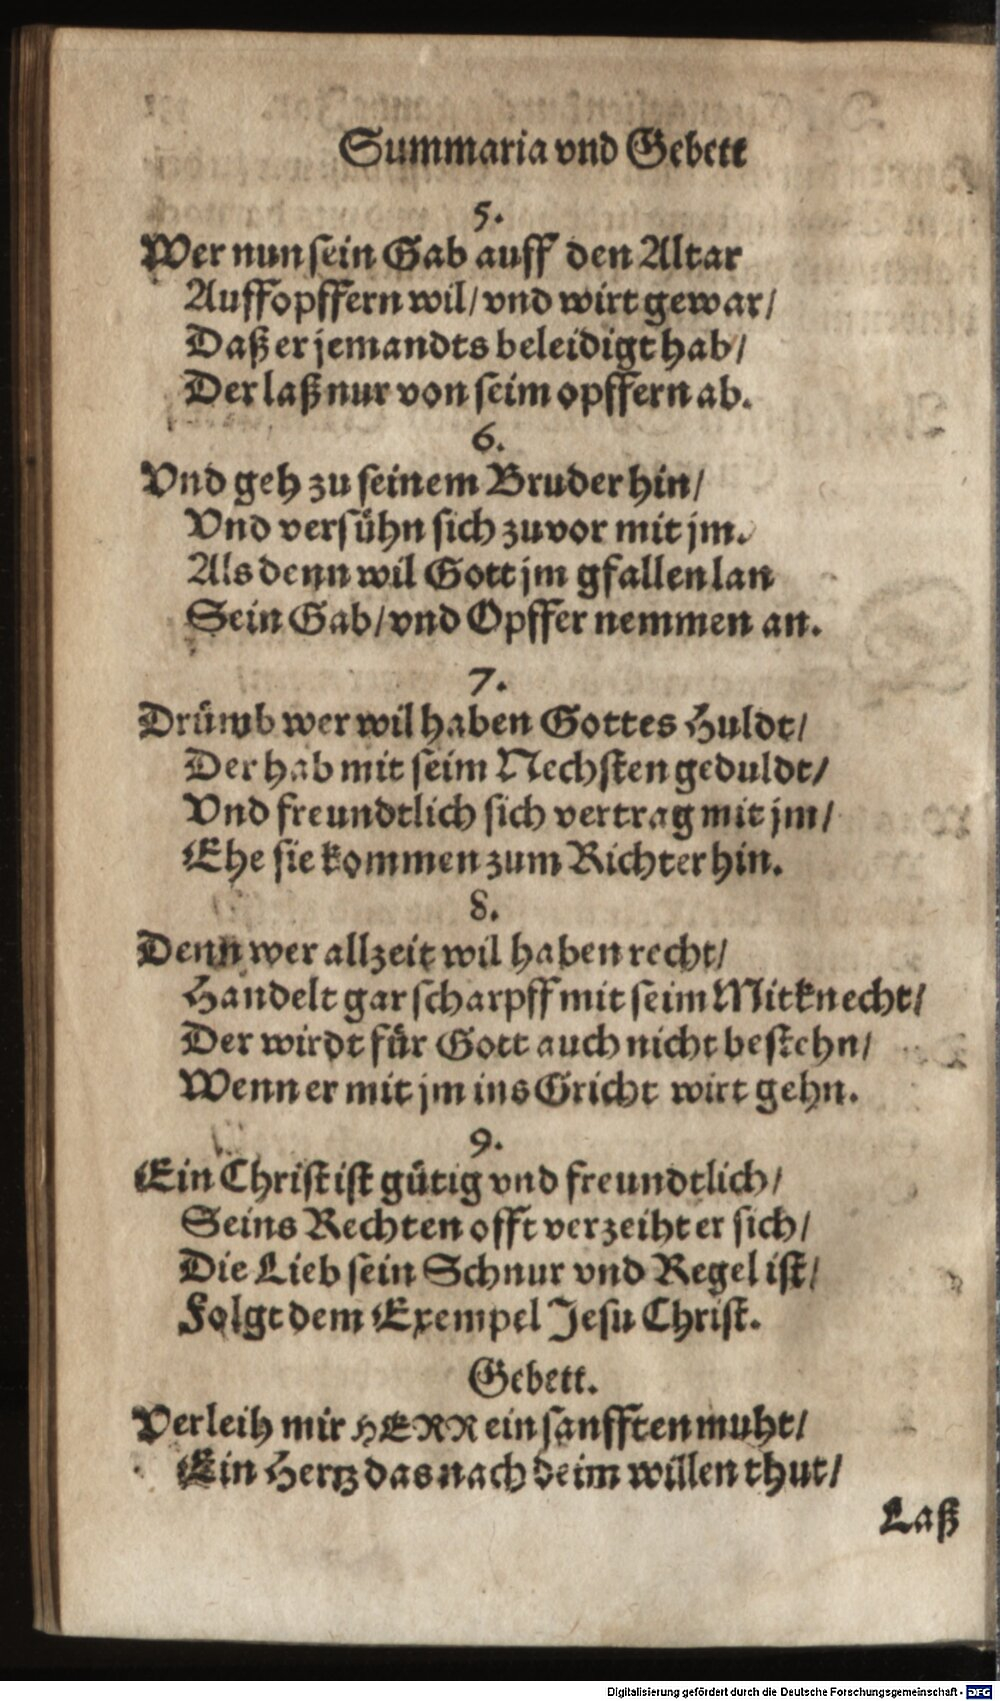 Summaria vnd Gebett
5.
Wer nun sein Gab auff den Altar
Auffopffern wil/ vnd wirt gewar/
Daß er jemandts beleidigt hab/
Der laß nur von seim opffern ab.
6.
Vnd geh zu seinem Bruder hin/
Vnd versühn sich zuvor mit jm.
Als denn wil Gott jm gfallen lan
Sein Gab/ vnd Opffer nemmen an.
7.
Drümb wer wil haben Gottes Huldt/
Der hab mit seim Nechsten geduldt/
Vnd freundtlich sich vertrag mit jm/
Ehe sie kommen zum Richter hin.
8.
Denn wer allzeit wil haben recht/
Handelt gar scharpff mit seim Mitknecht/
Der wirdt für Gott auch nicht bestehn/
Wenn er mit jm ins Gricht wirt gehn.
9.
Ein Christ ist gütig vnd freundtlich/
Seins Rechten offt verzeiht er sich/
Die Lieb sein Schnur vnd Regel ist/
Folgt dem Exempel Jesu Christ.
Gebett.
Verleih mir HERR ein sanfften muht/
Ein Hertz das nach deim willen thut/
Laß
Digitalisierung gefördert durch die Deutsche Forschungsgemeinschaft - DFG